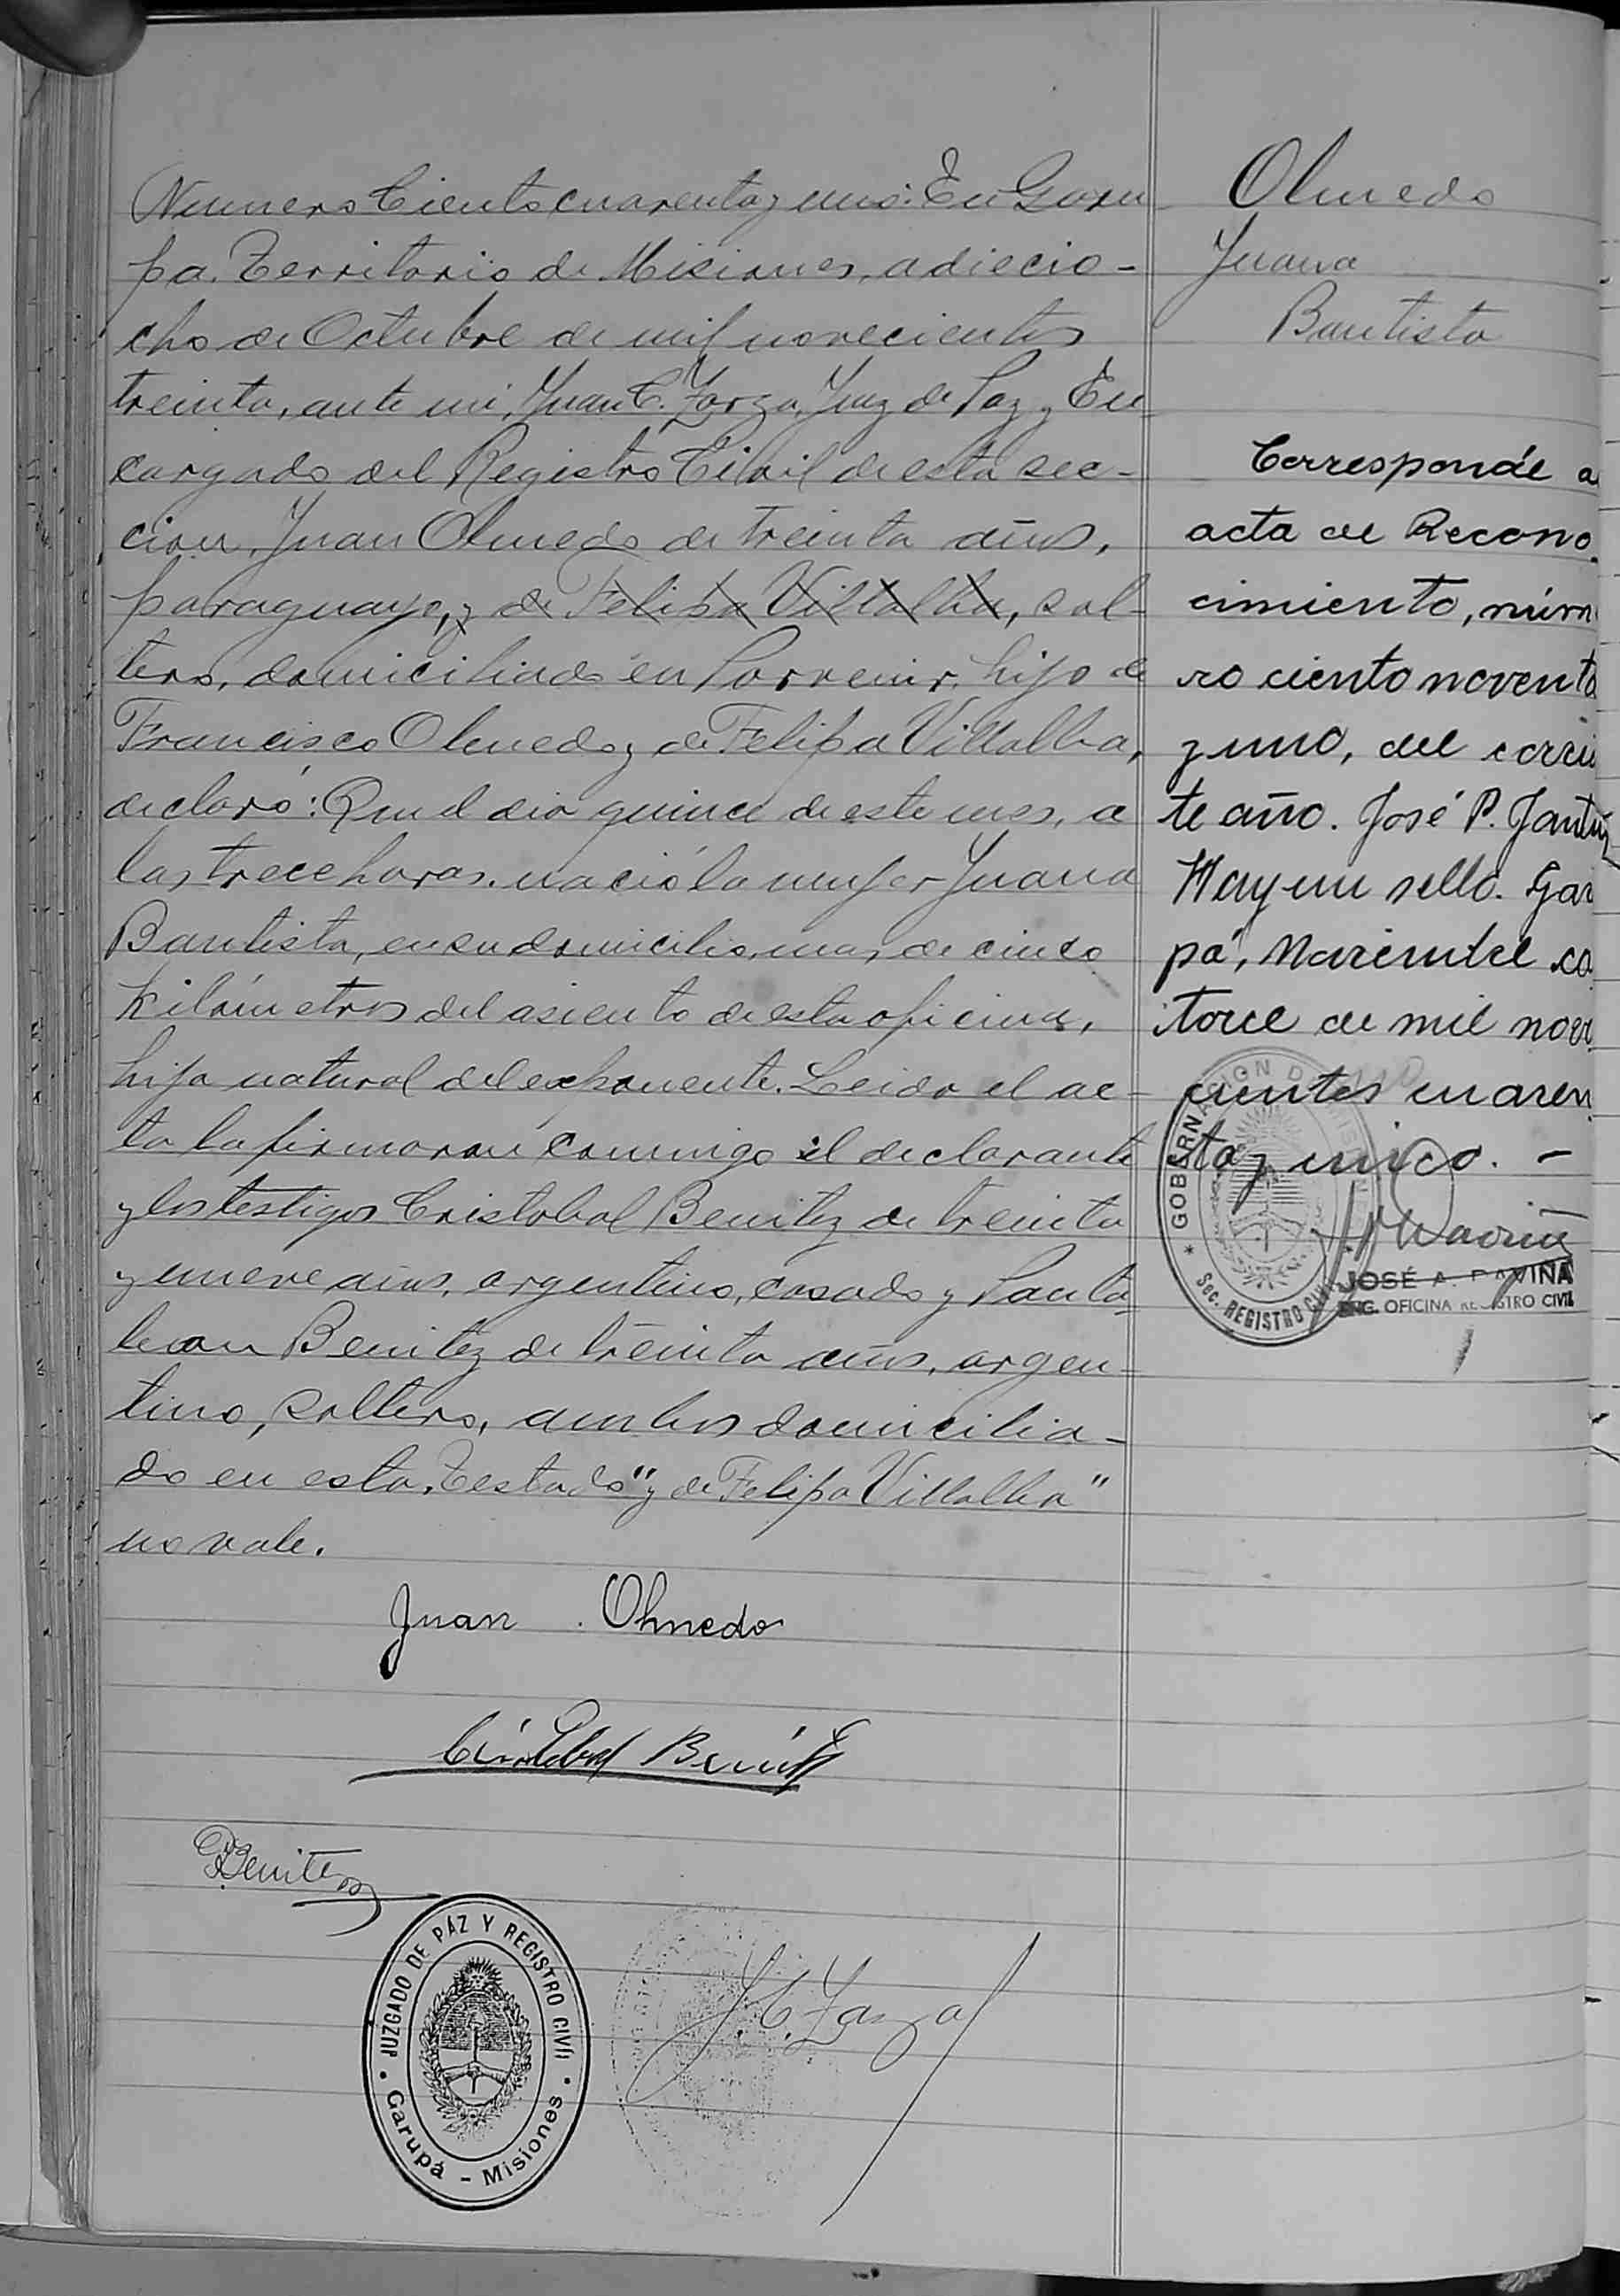 Numero Ciento cuarenta y uno: En Garu-
pa. Territorio de Misiones, a diecio-
cho de Octubre de mil novecientos
treinta, ante mi, Juan C. Zarza, Juez de Paz y En-
cargado del Registro Civil de esta sec-
cion, Juan Olmedo de treinta años,
paraguayo, y de Felipa Villalba, sol-
tero, domiciliado en Porvenir, hijo de
Francisco Olmedo y de Felipa Villalba,
declaró: Que el dia quince de este mes, a
las trece horas. nació la mujer Juana
Bautista, en su domicilio, mas de cinco
kilómetros del asiento de esta oficina,
hija natural del exponente. Leida el ac-
ta la firmaron conmigo el declarante
y los testigos Cristobal Benitez de treinta
y nueve años, argentino, casado y Panta-
leon Benitez de treinta años, argen-
tino, soltero, ambos domicilia-
do en esta. Testado "y de Felipa Villalba"
no vale.
Juan Olmedo
Cristobal Benitez
Benitez
J. C. Zarza
JUZGADO DE PÁZ Y REGISTRO CIVIL
Garupá - Misiones
Olmedo
Juana
Bautista
Corresponde a
acta de Recono-
cimiento, núme
ro ciento noventa
y uno, del corrien
te año. José P.
Hay un sello. Garu
pá, Noviembre ca
torce de mil nove
cientos cuaren
ta y cinco. -
GOBERNACION DE MISIONES
Sec. REGISTRO CIVIL
JOSÉ A. PAVIÑA
ENC. OFICINA REGISTRO CIVIL